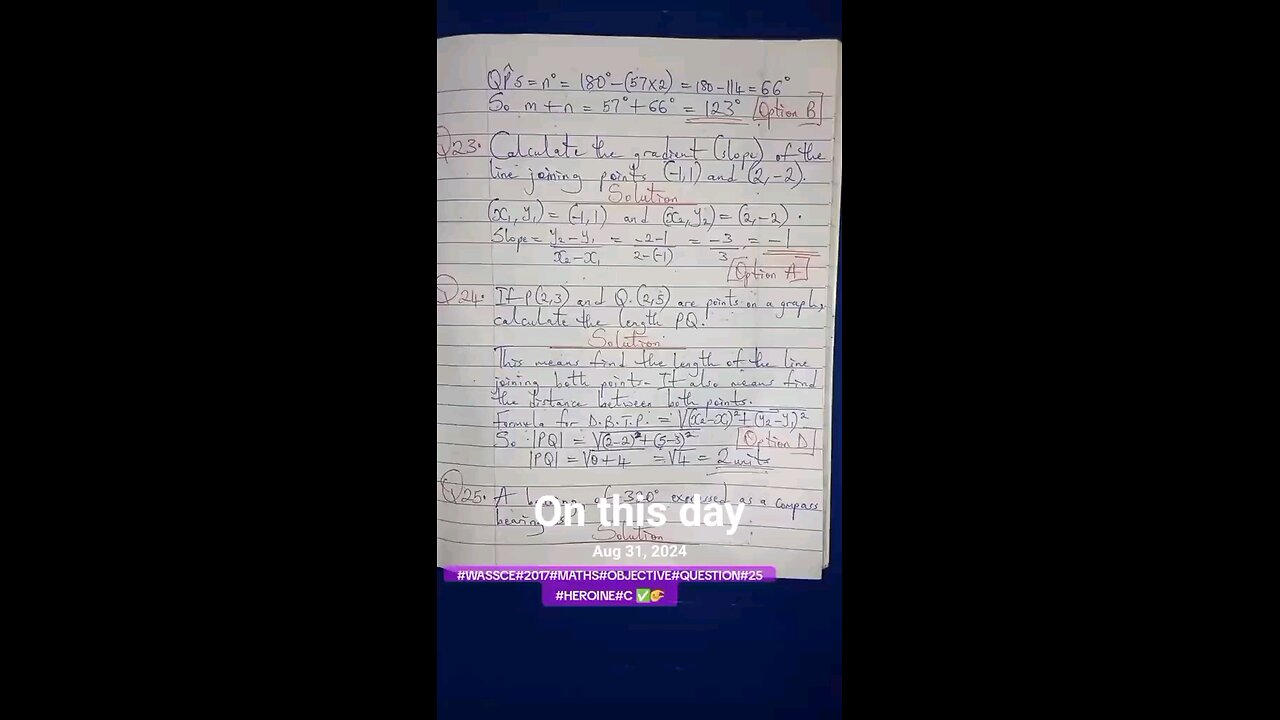 QP̂S = n° = 180° - (57×2) = 180 - 114 = 66°
So m + n = 57° + 66° = 123° Option B
Q23. Calculate the gradient (slope) of the
line joining points (-1,1) and (2,-2).
Solution
(x₁, y₁) = (-1,1) and (x₂, y₂) = (2,-2).
Slope = y₂-y₁/x₂-x₁ = -2-1/2-(-1) = -3/3 = -1
Option A
Q24. If P(2,3) and Q.(2,5) are points on a graph,
calculate the length PQ.
Solution
This means find the length of the line
joining both points. It also means find
the distance between both points.
Formula for D.B.T.P. = √(x₂-x)²+(y₂-y₁)²
So |PQ| = √(2-2)²+(5-3)² Option D
|PQ| = √0+4 = √4 = 2 units
Q25. A of expressed as a compass
bearing
Solution
On this day
Aug 31, 2024
#WASSCE#2017#MATHS#OBJECTIVE#QUESTION#25
#HEROINE#C ✅